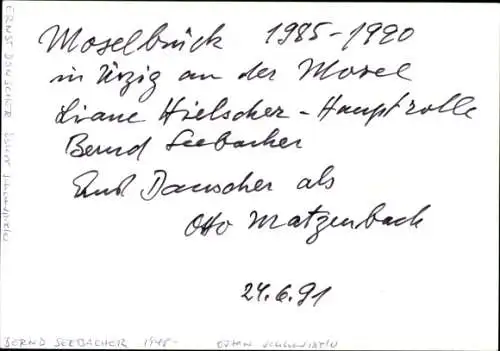 Moselbrück 1985-1990
in Ürzig an der Mosel
Liane Hielscher - Hauptrolle
Bernd Seebacher
Ernst Danscher als
Otto Matzenbach
24.6.91
BERND SEEBACHER 1948-